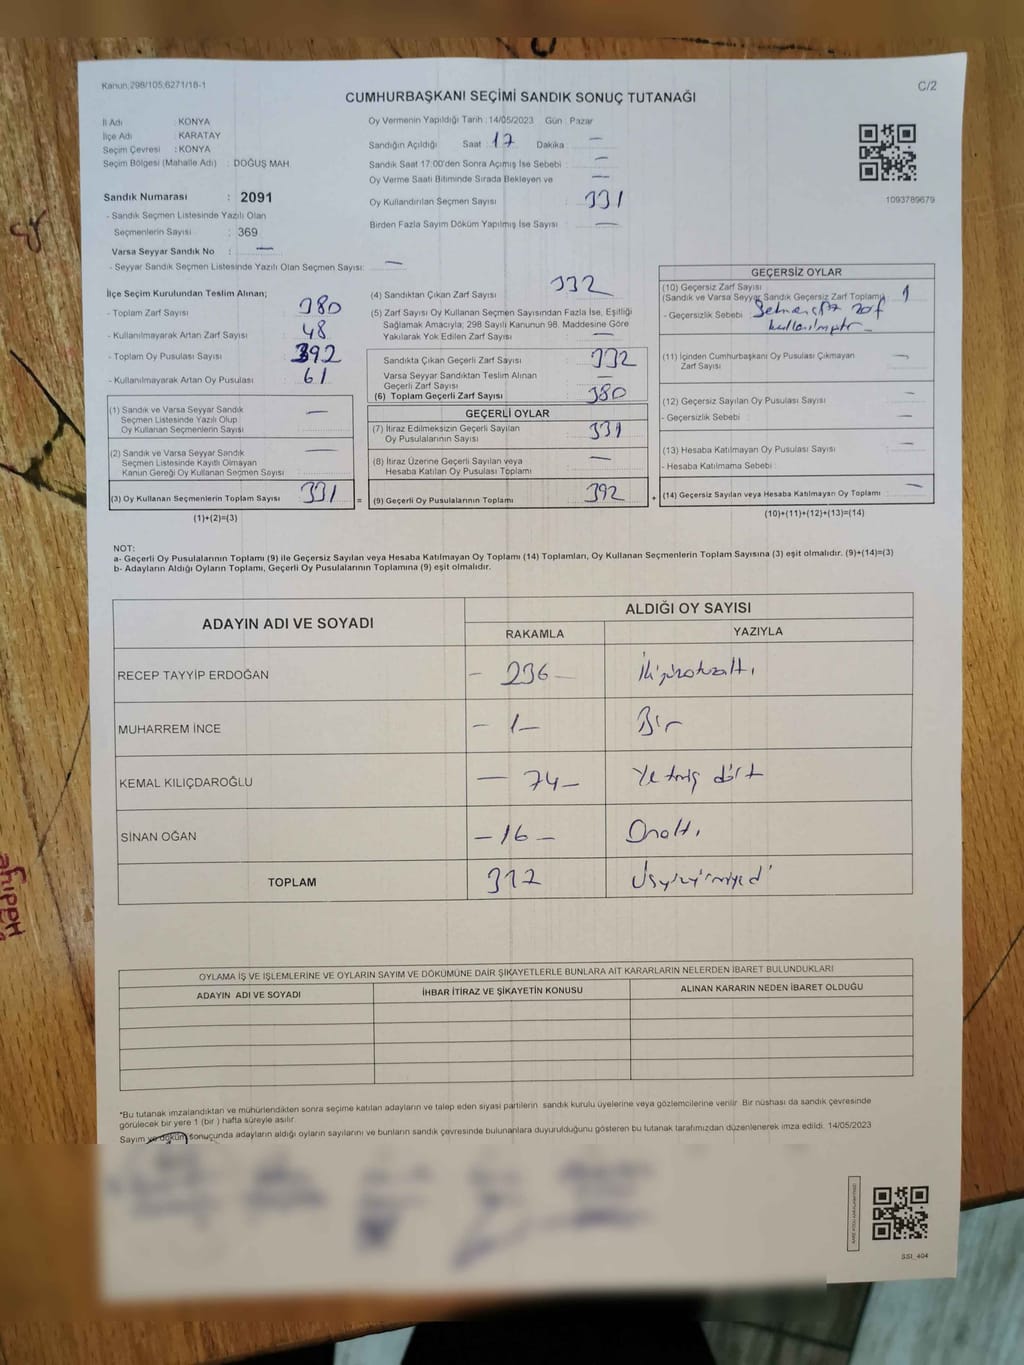 Kanun.298/105;6271/18-1
C/2
CUMHURBAŞKANI SEÇİMİ SANDIK SONUÇ TUTANAĞI
İl Adı : KONYA
İlçe Adı : KARATAY
Seçim Çevresi : KONYA
Seçim Bölgesi (Mahalle Adı) : DOĞUŞ MAH.
Sandık Numarası : 2091
- Sandık Seçmen Listesinde Yazılı Olan
Seçmenlerin Sayısı : 369
Varsa Seyyar Sandık No : —
- Seyyar Sandık Seçmen Listesinde Yazılı Olan Seçmen Sayısı: —
Oy Vermenin Yapıldığı Tarih : 14/05/2023 Gün : Pazar
Sandığın Açıldığı Saat : 17 Dakika —
Sandık Saat 17:00'den Sonra Açımış İse Sebebi : —
Oy Verme Saati Bitiminde Sırada Bekleyen ve —
Oy Kullandırılan Seçmen Sayısı 331
Birden Fazla Sayım Döküm Yapılmış İse Sayısı : —
1093789679
İlçe Seçim Kurulundan Teslim Alınan;
- Toplam Zarf Sayısı : 380
- Kullanılmayarak Artan Zarf Sayısı : 48
- Toplam Oy Pusulası Sayısı : 392
- Kullanılmayarak Artan Oy Pusulası : 61
(1) Sandık ve Varsa Seyyar Sandık —
Seçmen Listesinde Yazılı Olup
Oy Kullanan Seçmenlerin Sayısı
(2) Sandık ve Varsa Seyyar Sandık —
Seçmen Listesinde Kayıtlı Olmayan
Kanun Gereği Oy Kullanan Seçmen Sayısı
(3) Oy Kullanan Seçmenlerin Toplam Sayısı 331 =
(1)+(2)=(3)
(4) Sandıktan Çıkan Zarf Sayısı 332
(5) Zarf Sayısı Oy Kullanan Seçmen Sayısından Fazla İse, Eşitliği
Sağlamak Amacıyla; 298 Sayılı Kanunun 98. Maddesine Göre
Yakılarak Yok Edilen Zarf Sayısı —
Sandıkta Çıkan Geçerli Zarf Sayısı : 332
Varsa Seyyar Sandıktan Teslim Alınan —
Geçerli Zarf Sayısı
(6) Toplam Geçerli Zarf Sayısı : 380
GEÇERLİ OYLAR
(7) İtiraz Edilmeksizin Geçerli Sayılan 331
Oy Pusulalarının Sayısı
(8) İtiraz Üzerine Geçerli Sayılan veya —
Hesaba Katılan Oy Pusulası Toplamı
(9) Geçerli Oy Pusulalarının Toplamı : 392 +
GEÇERSİZ OYLAR
(10) Geçersiz Zarf Sayısı
(Sandık ve Varsa Seyyar Sandık Geçersiz Zarf Toplamı) 1
- Geçersizlik Sebebi : zarf
(11) İçinden Cumhurbaşkanı Oy Pusulası Çıkmayan —
Zarf Sayısı
(12) Geçersiz Sayılan Oy Pusulası Sayısı —
- Geçersizlik Sebebi : —
(13) Hesaba Katılmayan Oy Pusulası Sayısı —
- Hesaba Katılmama Sebebi :
(14) Geçersiz Sayılan veya Hesaba Katılmayan Oy Toplamı —
(10)+(11)+(12)+(13)=(14)
NOT:
a- Geçerli Oy Pusulalarının Toplamı (9) ile Geçersiz Sayılan veya Hesaba Katılmayan Oy Toplamı (14) Toplamları, Oy Kullanan Seçmenlerin Toplam Sayısına (3) eşit olmalıdır. (9)+(14)=(3)
b- Adayların Aldığı Oyların Toplamı, Geçerli Oy Pusulalarının Toplamına (9) eşit olmalıdır.
ADAYIN ADI VE SOYADI
ALDIĞI OY SAYISI
RAKAMLA YAZIYLA
RECEP TAYYİP ERDOĞAN - 236 -
MUHARREM İNCE - 1 - Bir
KEMAL KILIÇDAROĞLU - 74 - Yetmiş dört
SİNAN OĞAN - 16 - Onaltı
TOPLAM
OYLAMA İŞ VE İŞLEMLERİNE VE OYLARIN SAYIM VE DÖKÜMÜNE DAİR ŞİKAYETLERLE BUNLARA AİT KARARLARIN NELERDEN İBARET BULUNDUKLARI
ADAYIN ADI VE SOYADI İHBAR İTİRAZ VE ŞİKAYETİN KONUSU ALINAN KARARIN NEDEN İBARET OLDUĞU
*Bu tutanak imzalandıktan ve mühürlendikten sonra seçime katılan adayların ve talep eden siyasi partilerin sandık kurulu üyelerine veya gözlemcilerine verilir. Bir nüshası da sandık çevresinde
görülecek bir yere 1 (bir ) hafta süreyle asılır.
Sayım ve döküm sonuçunda adayların aldığı oyların sayılarını ve bunların sandık çevresinde bulunanlara duyurulduğunu gösteren bu tutanak tarafımızdan düzenlenerek imza edildi. 14/05/2023
SSI_404